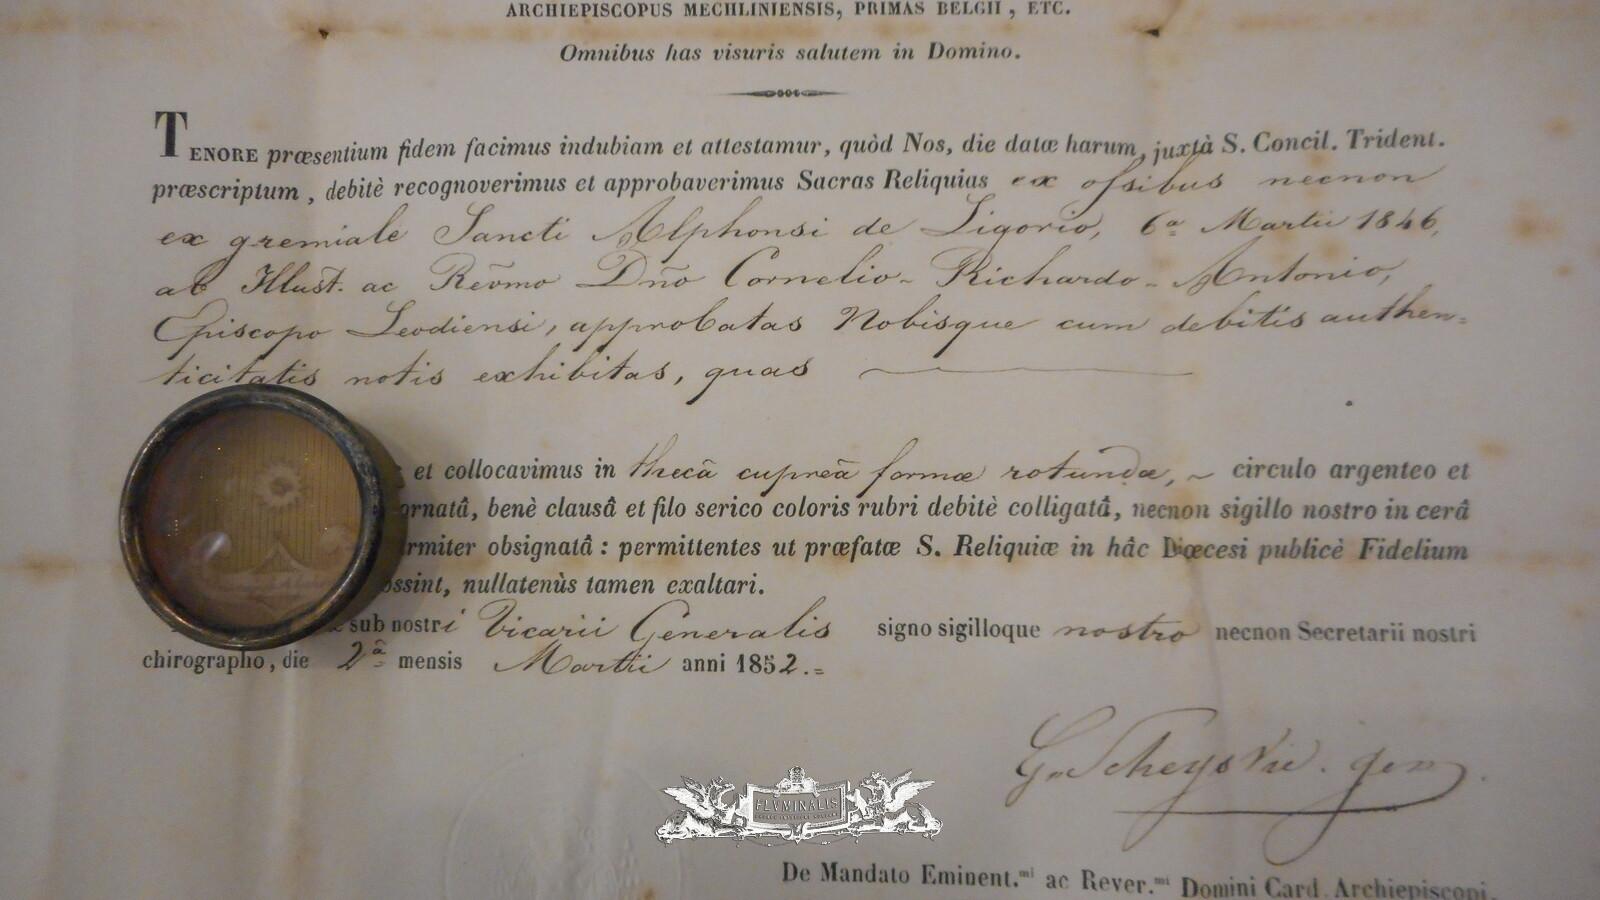 ARCHIEPISCOPUS MECHLINIENSIS, PRIMAS BELGII, ETC.
Omnibus has visuris salutem in Domino.
TENORE præsentium fidem facimus indubiam et attestamur, quòd Nos, die datæ harum, juxtà S. Concil. Trident.
præscriptum, debitè recognoverimus et approbaverimus Sacras Reliquias ex ossibus necnon
ex gremiale Sancti Alphonsi de Ligorio, 6ª Martii 1846,
ab Illust. ac Rev̄mo Dn̄o Cornelio-Richardo-Antonio,
Episcopo Leodiensi, approbatas Nobisque cum debitis authen=
ticitatis notis exhibitas, quas
et collocavimus in thecâ cupreâ formæ rotundæ, circulo argenteo et
ornatâ, benè clausâ et filo serico coloris rubri debitè colligatâ, necnon sigillo nostro in cerâ
rmiter obsignatâ: permittentes ut præfatæ S. Reliquiæ in hâc Diœcesi publicè Fidelium
ossint, nullatenùs tamen exaltari.
sub nostri Vicarii Generalis signo sigilloque nostro necnon Secretarii nostri
chirographo, die 2ª mensis Martii anni 1852.=
G. Scheys Vic. gen.
FLVMINALIS
De Mandato Eminent.mi ac Rever.mi Domini Card. Archiepiscopi.